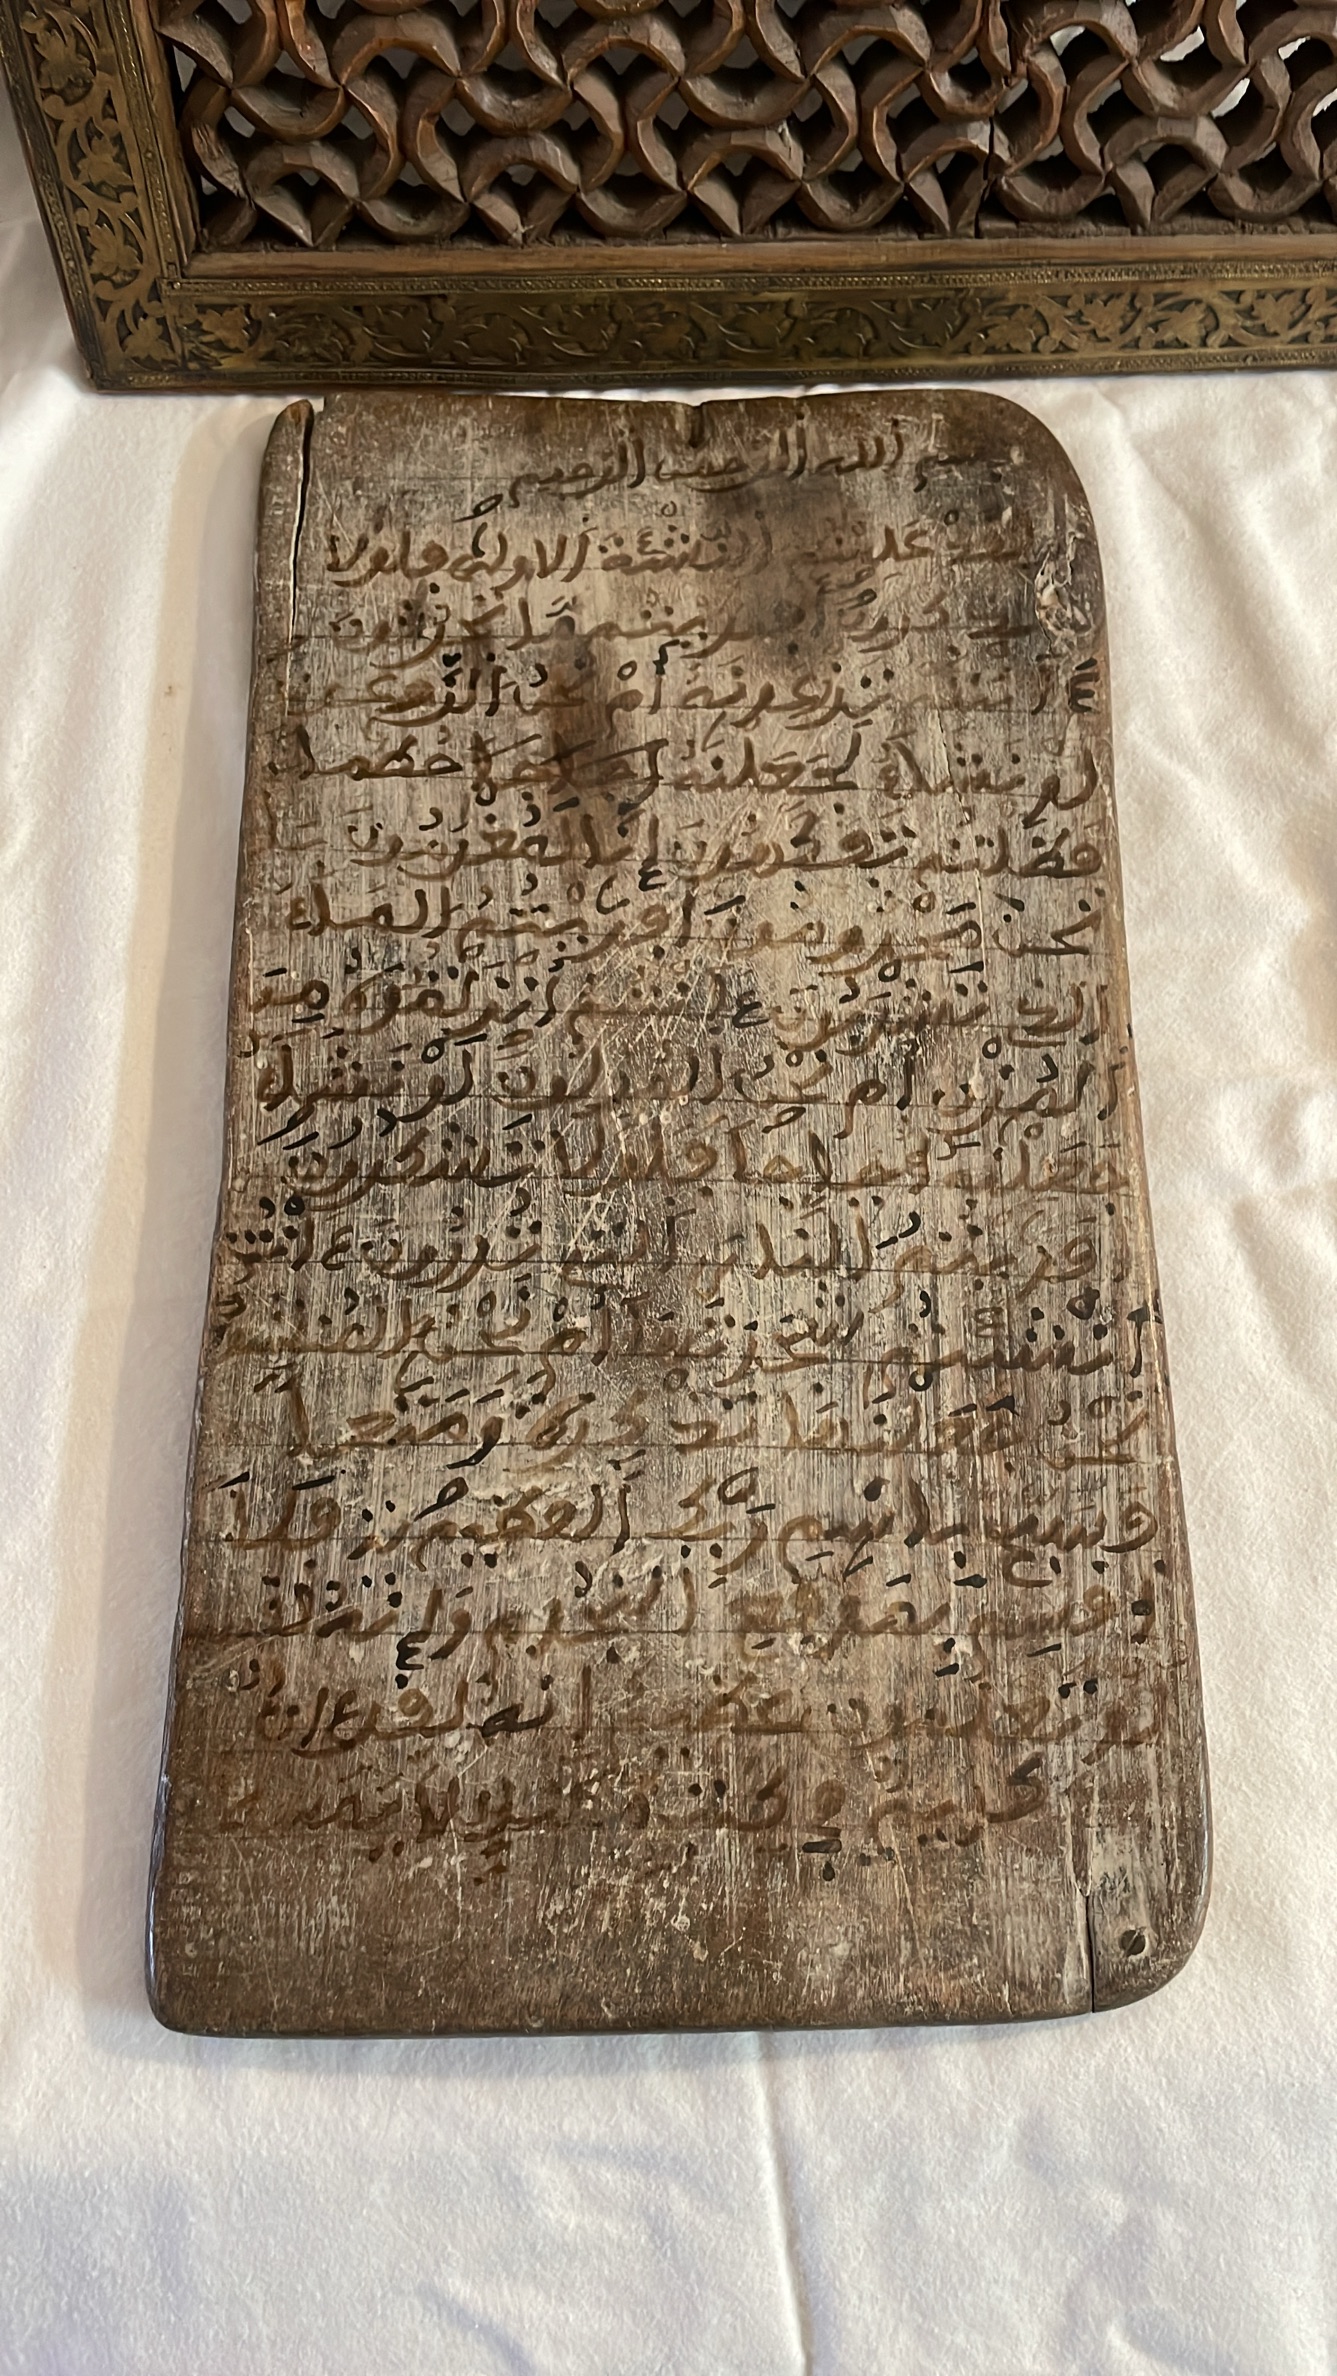 بسم الله الرحمن الرحيم
علمتم النشئة الاولى فلولا
تذكرون افريتم ما تحرثون
ءانتم تزرعونه أم نحن الزرعون
لو نشاء لجعلنه حطما
فظلتم تفكهون إنا لمغرمون بل
نحن محرومون افريتم الماء
الذي تشربون ءانتم أنزلتموه من
المزن أم نحن المنزلون لو نشاء
جعلنه أجاجا فلولا تشكرون
افريتم النار التي تورون ءانتم
أنشأتم شجرتها أم نحن المنشئون
نحن جعلنها تذكرة ومتعا
فسبح باسم ربك العظيم فلا
اقسم بموقع النجوم وإنه لقسم
لو تعلمون عظيم إنه لقرءان
كريم في كتب لا يمسه